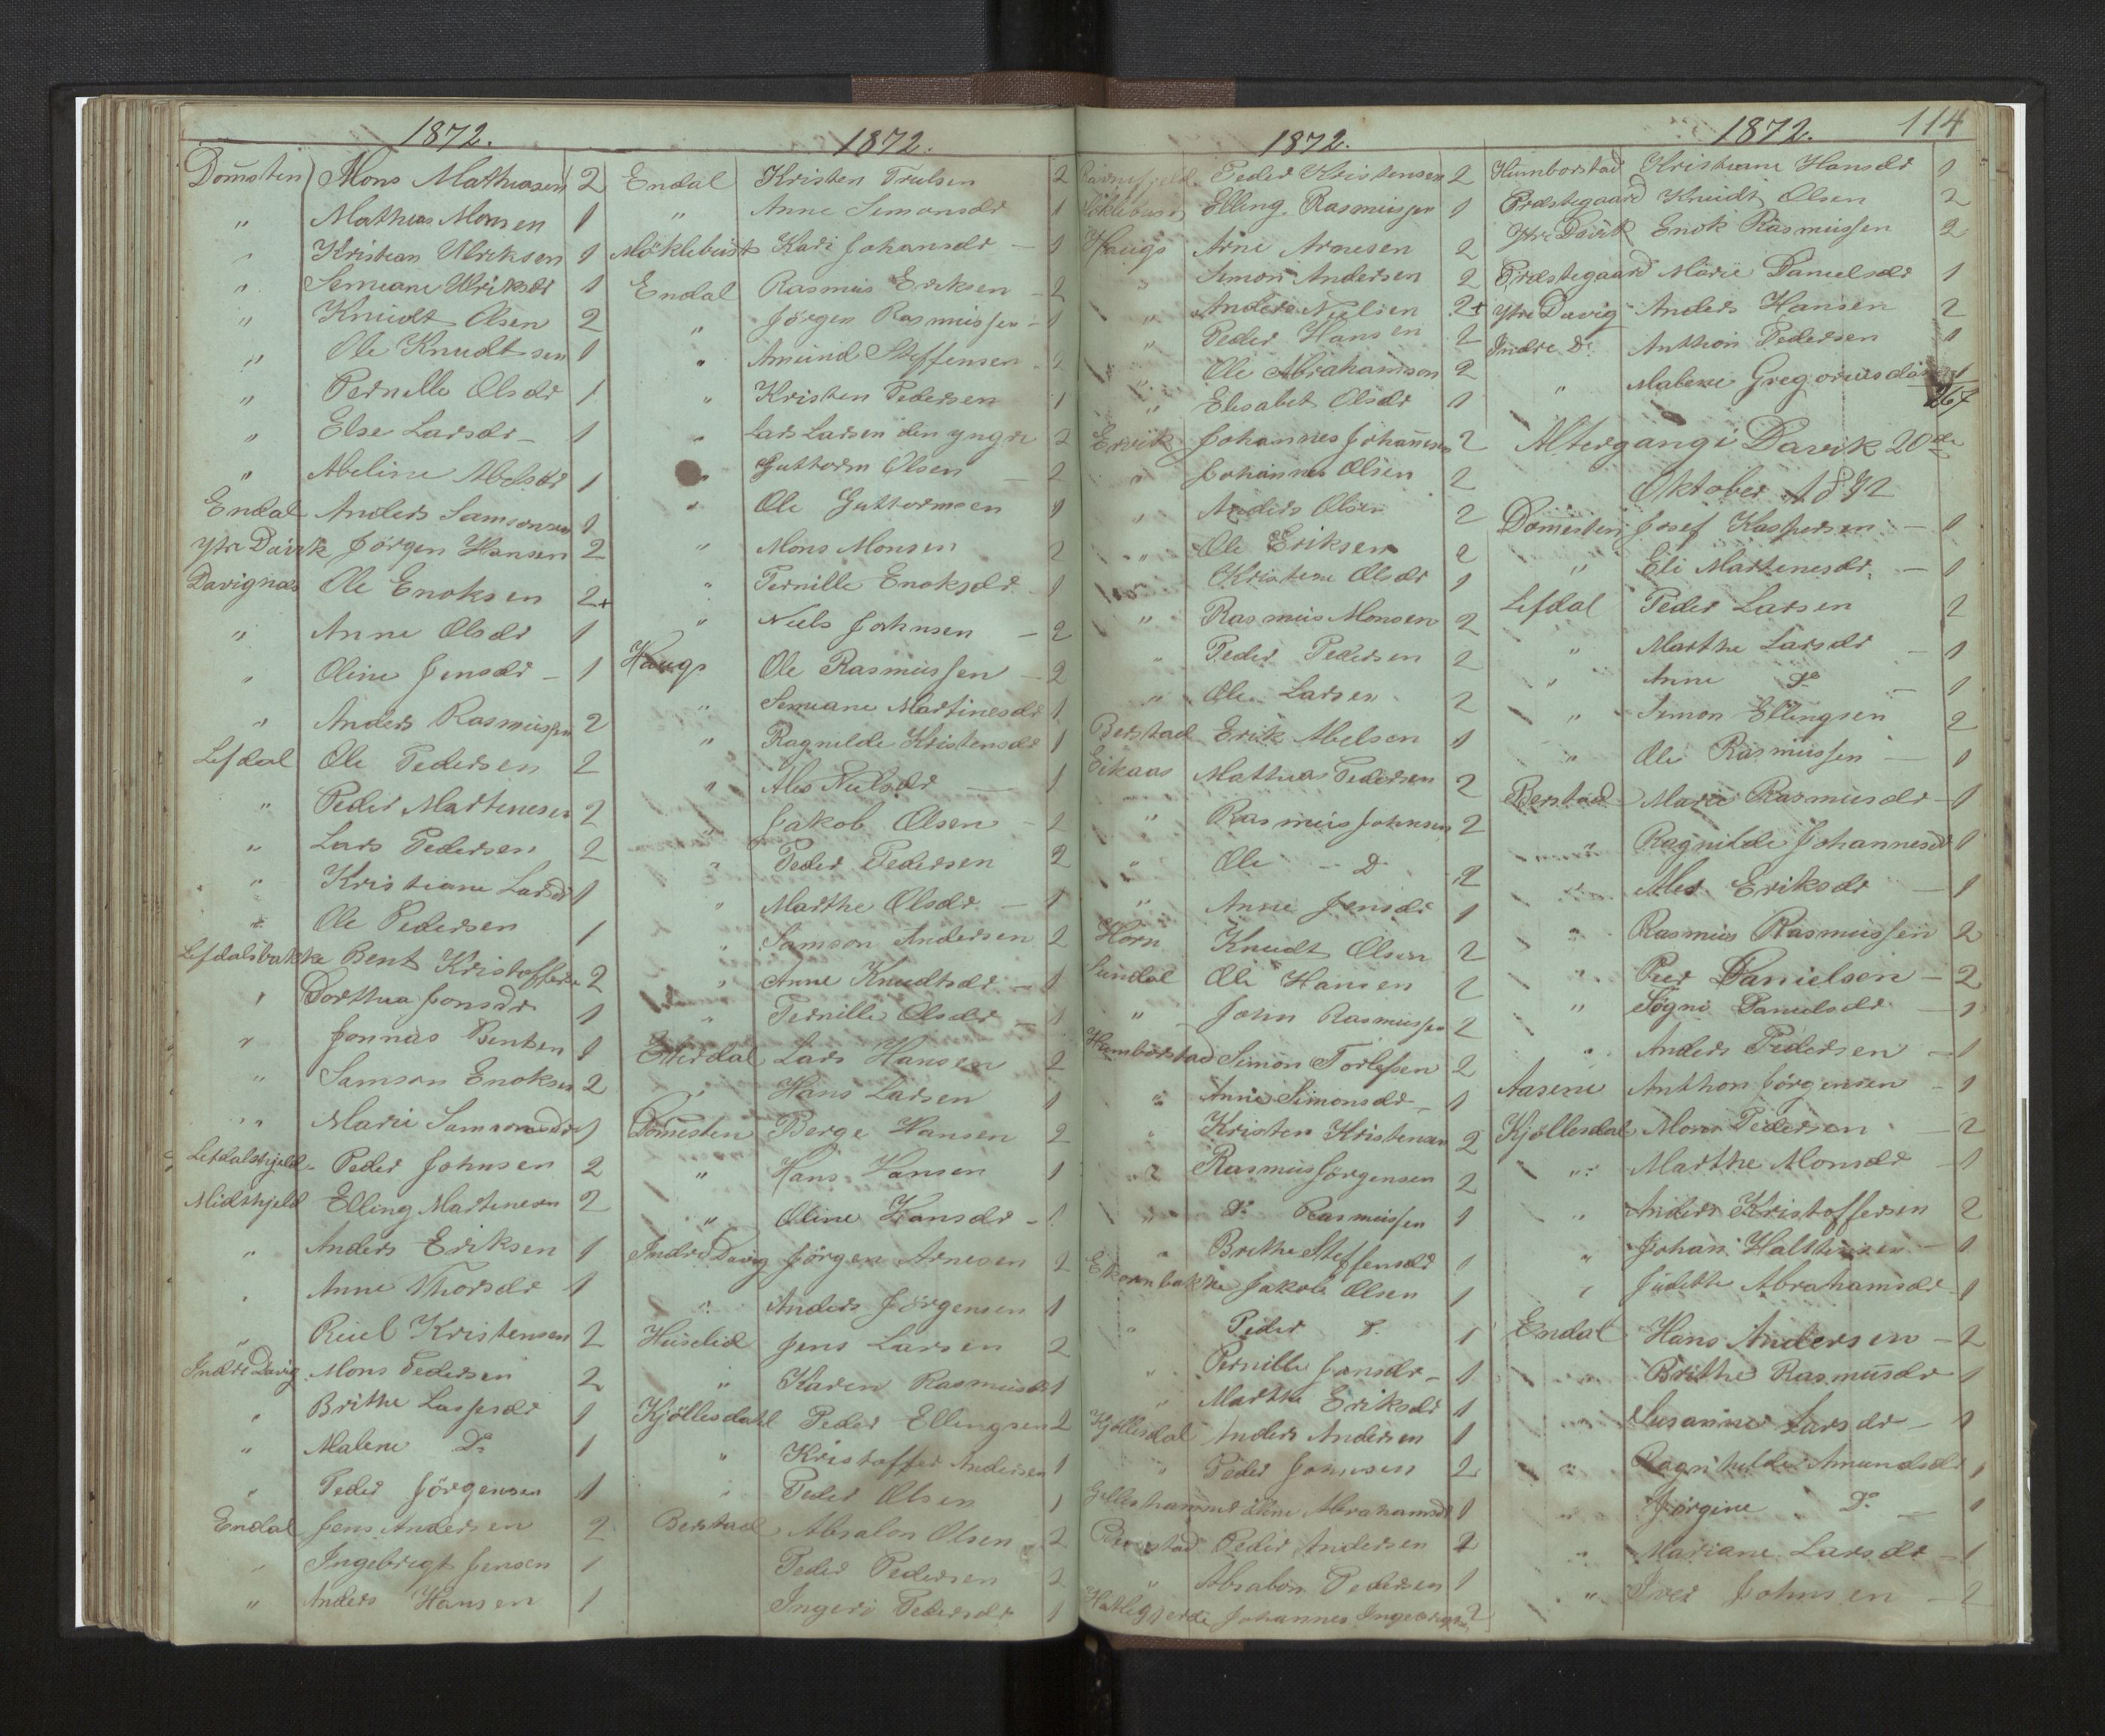 1872.
Domsten Mons Mathiasen 2
" Mathias Monsen 1
" Kristian Ulriksen 1
" Semiane Ulriksdr 1
" Knudt Olsen 2
" Ole Knudtsen 1
" Pernille Olsdr 1
" Else Larsdr - 1
" Abeline Abelsdr 1
Endal Anders Samsonsen 1
Ytre Davik Jörgen Hansen 2
Davignæs Ole Enoksen 2+
" Anne Olsdr 1
" Oline Jensdr - 1
" Anders Rasmussen 2
Lefdal Ole Pedersen 2
" Peder Martenesen 2
" Lars Pedersen 2
" Kristiane Larsdr 1
" Ole Pedersen 1
Lefdalsbakke Bent Kristoffersen 2
" Dorthea Jonsdr 1
" Jonnas Bentsen 1
" Samson Enoksen 2
" Marie Samsonsdr 1
Lefdalshjeld Peder Johnsen 2
Midthjeld Elling Martinesen 2
" Anders Eriksen 1
" Anne Thorsdr 1
" Reiel Kristensen 2
Indre Davig Mons Pedersen 2
" Brithe Lassesdr 1
" Malene Do 1
" Peder Jörgensen 1
Endal Jens Andersen 2
" Ingebrigt Jensen 1
" Anders Hansen 1
1872.
Endal Kristen Trulsen 2
" Anne Simonsdr 1
Möklebust Kari Johansdr - 1
Endal Rasmus Eriksen - 2
" Jörgen Rasmussen - 1
" Amund Steffensen - 2
" Kristen Pedersen 1
" Lars Larsen den yngre 2
" Guttorm Olsen - 2
" Ole Guttormsen 1
" Mons Monsen 2
" Pernille Enoksdr 1
" Niels Johnsen - 2
Haugs Ole Rasmussen - 2
" Semiane Martinesdr 1
" Ragnilde Kristensdr 1
" Ales Nielsdr - 1
" Jakob Olsen - 2
" Peder Pedersen 2
" Marthe Olsdr - 1
" Samson Andersen 2
" Anne Knudtsdr - 1
" Pernille Olsdr - 1
Endal Lars Hansen 2
" Hans Larsen 1
Domesten Berge Hansen 2
" Hans Hansen 1
" Oline Hansdr - 1
Indre Davig Jörgen Arnesen 2
" Anders Jörgensen 1
Huselid Jens Larsen 2
" Karen Rasmusdr 1
Kjöllesdal Peder Ellingsen 2
" Kristoffer Andersen 1
" Peder Olsen 1
Berstad Absalon Olsen 2
Peder Pedersen 2
Ingeri Pedersdr 1
1872.
Peder Kristensen 2
Elling Rasmussen 1
Haugs Arne Arnesen 2
" Simon Andersen 2
" Anders Nielsen 2+
" Peder Hansen 2
" Ole Abrahamson 2
" Elisabet Olsdr 1
Ervik Johannes Johannesen 2
" Johannes Olsen 2
" Anders Olsen 2
" Ole Eriksen 2
" Kristine Olsdr 1
" Rasmus Monsen 2
" Peder Pedersen 2
" Ole Larsen 2
Berstad Erik Abelsen 1
Eikaas Mathias Pedersen 2
" Rasmus Johnsen 2
" Ole - Do 2
" Anne Jensdr 1
Horn Knudt Olsen 2
Sundal Ole Hansen 2
" John Rasmussen 2
Humborstad Simon Torlefsen 2
" Anne Simonsdr - 1
" Kristen Kristensen 2
" Rasmus Jörgensen 2
" Do Rasmussen 1
" Brithe Steffensdr 1
Ekornbakke Jakob Olsen 1
" Peder Do 1
" Pernille Jonsdr - 1
" Marthe Eriksdr 1
Kjöllesdal Anders Andersen 1
" Peder Johnsen 2
Oline Abrahamsdr 1
Berstad Peder Andersen 2
" Absalon Pedersen 1
Johannes 2
1872. 114
Humborstad Kristiane Hansdr 1
Præstegaard Knudt Olsen 2
Ytre Davik Enok Rasmussen 2
Præstegaard Marie Danielsdr 1
Ytre Davig Anders Hansen 2
Indre Do Anthon Pedersen 1
" Malene Gregoriusdr 1
267
Altergang i Davik 20de
Oktober 1872
Domesten Josef Kaspersen - 1
" Eli Martenesdr - 1
Lefdal Peder Larsen 2
" Marthe Larsdr - 1
" Anne Do - 1
" Simon Ellingsen 2
" Ole Rasmussen - 1
Berstad Marie Rasmusdr - 1
" Ragnilde Johannesdr 1
" Ales Eriksdr - 1
" Rasmus Rasmussen 2
" Peer Danielsen - 2
" Sögni Danielsdr - 1
" Anders Pedersen - 1
Aasene Anthon Jörgensen - 1
Kjöllesdal Mons Pedersen - 2
" Marthe Monsdr - 1
" Anders Kristoffersen 2
" Johan - 1
" Judithe Abrahamsdr - 1
Endal Hans Andersen - 2
" Brithe Rasmusdr 1
" Susanne Larsdr - 1
" Ragnhilde Amundsdr 1
" Jörgine Do - 1
" Mariane Larsdr - 1
" Iver Johnsen - 2